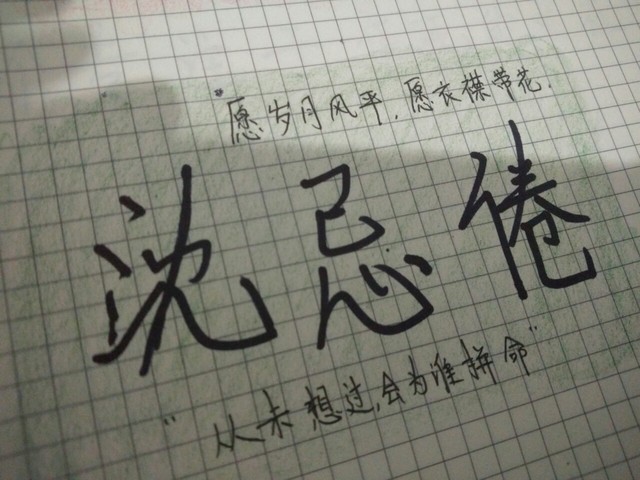 愿岁月风平,愿衣襟带花.
沈忌倦
"从未想过,会为谁拼命"